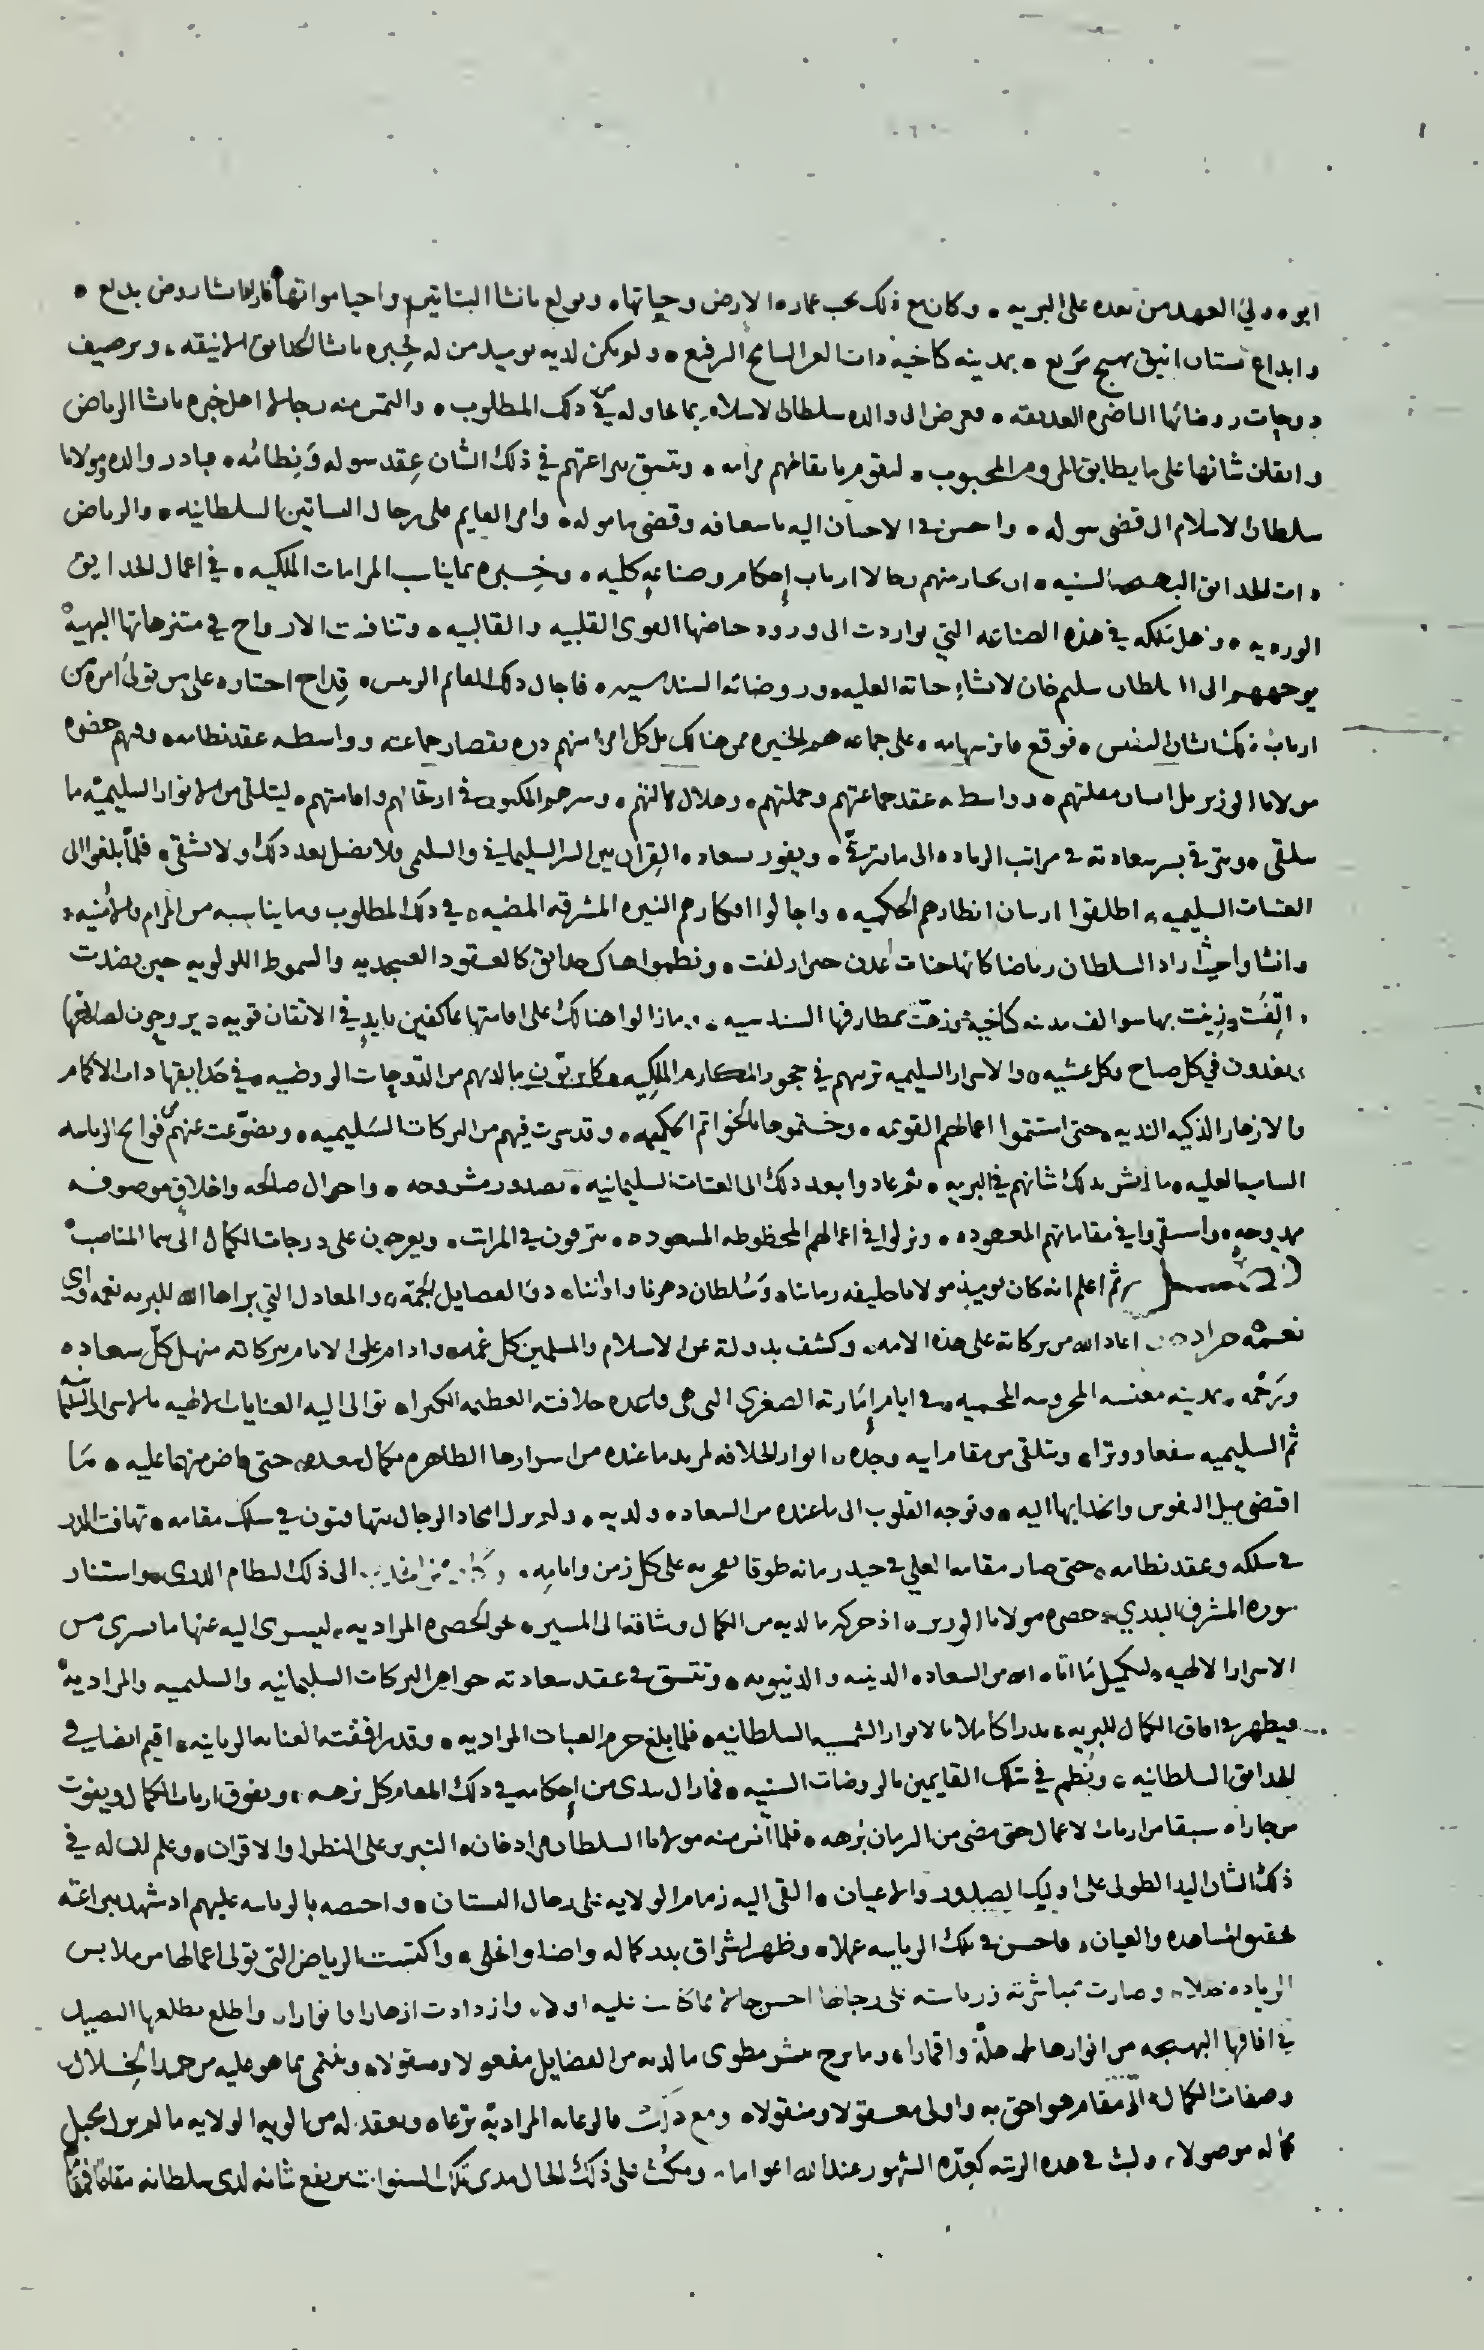 ابوه ولي العهد من بعده على البريه • وكان مع ذلك يحب عماره الارض وحياتها • ويولع بانشا البساتين واحيا مواتها بانشا روض بديع •
وابداع بستان انيق بهيج مريع • بمدينه كاخيه ذات السامخ الرفيع • ولم يكن لديه يوميذ من له خبره بانشا الحدايق الانيقه • وترصيف
دوحات روضاتها الناضره • فعرض الى والده سلطان الاسلام بما يحاوله من ذلك المطلوب • والتمس منه رجالا اهل خبره بانشا الرياض
واتقان شانها على ما يطابق المروم المحبوب • ليقوم مرامه • وتتسق براعتهم في ذلك الشان عقد سوله ونظامه • فبادر والده مولانا
سلطان الاسلام الى قضى سوله • واحسن في الاحسان اليه باسعافه وقضى ماموله • وامر القايم على رجال البساتين السلطانيه • والرياض
ذات الحدايق السنيه • ان يختار منهم رجالا ارباب إحكام وصناعه كليه • وخبره بما يناسب المرامات الملكيه • في اعمال الحدايق
الورديه • في هذه الصناعه التي تواردت الى ورود حياضها القوى القلبيه والقالبيه • وتنافرت الارواح في متنزهاتها البهيه
يوجههم الى السلطان سليم خان لانشاء جناته العليه وروضاته السندسيه • فاجال ذلك القايم الريس • قداح اختياره على من تولى امره من
ارباب ذلك الشان النفيس • فوقع فايز سهامه • على جماعه هم الخيره ممن هنالك بل كل امرا منهم دره تقصار جماعته وواسطه عقد نظامه • وفيهم حضره
مولانا الوزير بل انسان مقلتهم • وواسطه عقد جماعتهم وجملتهم • وهلال هالتهم • وسرهم المكنون في ارتحالهم واقامتهم • ليتلقى من الانوار السليميه ما
يتلقى • ويترقى بسر سعادته في مراتب الزياده الى ما يترقى • ويفوز بسعاده القران بين السر السليماني والسليمي فلا يضل بعد ذلك ولا يشقى • فلما بلغوا الى
العتبات السليميه • اطلقوا ارسان انظارهم الحكميه • واجالوا افكارهم النيره المشرقه المضيه • في ذلك المطلوب وما يناسبه من المرام والامنيه •
وانشاوا حيث اراد السلطان رياضا كانها جنات عدن حين ازلفت • ونظموا هناك حدايق كالعقود العسجديه والسموط اللولويه حين نضدت
والفت • وزينت بها سوالف مدينه كاخيه بمطارفها السندسيه • وما زالوا هنالك على اقامتها عاكفين بايد في الاتقان قويه • يروحون
ويغدون في كل صباح وكل عشيه • والاسرار السليميه تربيهم في حجور المكارم الملكيه • كما يربون ما لديهم من الدوحات الروضيه • في حدايقها ذات الاكمام
والازهار الذكيه النديه • حتى استتموا اعمالهم القويمه • وختموها بالخواتم الحكيمه • وقد سرت فيهم من البركات السليميه • وتضوعت عنهم فوايح الرياسه
العليه • ما انتشر بذلك شانهم في البريه • ثم عادوا بعد ذلك الى العتبات السليمانيه • بصدور مشروحه • واحوال صالحه واخلاق موصوفه
ممدوحه • واستقروا في مقاماتهم المعهوده • ونزلوا في اعمالهم المحظوظه المسعوده • يترقون في المراتب • ويعرجون على درجات الكمال الى سما المناصب
ثم اعلم انه كان يوميذ مولانا خليفه زماننا • وسلطان دهرنا واواننا • ذو الفضايل الجمه • والمعادل التي يراها الله للبريه نعمه واي
نعمه مراد اعاد الله من بركاته على هذه الامه • وكشف بدولته عن الاسلام والمسلمين كل غمه • وادام على الانام ببركاته منهل كل سعاده
ورحمه • بمدينه مغنيسه المحروسه المحميه • في ايام إمارته الصغرى التي هي قاعده خلافته العظيمه الكبرا • توالى اليه العنايات الالهيه بالاسرار السليمانيه
ثم السليميه شفعا ووترا • ويتلقى من مقام ابيه وجده • انوار الخلافه من اسرارها الطاهره بكمال سعده • حتى فاض منها عليه • ما
اقتضى ميل النفوس وانجذابها اليه • وتوجه القلوب الى ما عنده من السعاده ولديه • ولم يزل الرجال يتهافتون في سلك مقامه • تهافت الدر
في سلكه وعقد نظامه • حتى صار مقامه العلي في جيد زمانه طوقا يفخر به على كل زمن وايامه • الى ذلك النظام الدري • واستنار
بنوره المشرق البدري • حضره مولانا الوزير • اذ حركه ما لديه من الكمال وشاقه الى المسير • نحو الحضره المراديه • ليسري اليه عنها ما يسري من
الاسرار الالهيه • لتكميل ما اتاه الله من السعاده الدينيه والدنيويه • وتتسق في عقد سعادته جواهر البركات السليمانيه والسليميه والمراديه
فيظهر في افاق الكمال للبريه • بدرا كاملا بالانوار الشمسيه السلطانيه • فلما بلغ حرم العتبات المراديه • وقد رافقته العنايه الربانيه • اقيم ايضا في
الحدايق السلطانيه • ونظم في سلك القايمين بالروضات السنيه • فما زال يبدي من إحكامه في ذلك المقام كل نزهه • ويفوق ارباب الكمال ويفوت
من جاراه سبقا من ارباب الاعمال حتى مضى من الزمان برهه • فلما آنس منه مولانا السلطان مراد خان • التبريز على النظرا والاقران • وعلم ان له في
ذلك الشان اليد الطولى على اوليك الصدور والاعيان • القى اليه زمام الولايه على رجال البستان • واختصه بالرياسه عليهم اذ شهد ببراعته
تحقيق المشاهده والعيان • فاحسن في تلك الرياسه عملا • وظهر اشراق بدر كماله واضا واجلى • واكتست الرياض التي تولى اعمالها من ملابس
الزياده حللا • وصارت بمباشرته ورياسته على رجالها احسن حالا مما كانت عليه اولا • وازدادت ازهارا وانوارا • واطلع مطلعها النضيد
في افاقها البهيجه من انوارها اهله واقمارا • وما برح ينشر مطوي ما لديه من الفضايل مفعولا ومقولا • وينتمي بما هو عليه من حميد الخلال
وصفات الكمال الى مقام هو احق به واولى معقولا ومنقولا • ومع ذلك فالرعايه المراديه ترعاه • ويعقد له من الويه الولايه ما لم يزل بحبل
كماله موصولا • ولبث في هذه الرتبه كعده الشهور عند الله اعواما • ومكث على ذلك الحال مدى تلك السنوات يرتفع شانه لدى سلطانه مقاما فمقاما